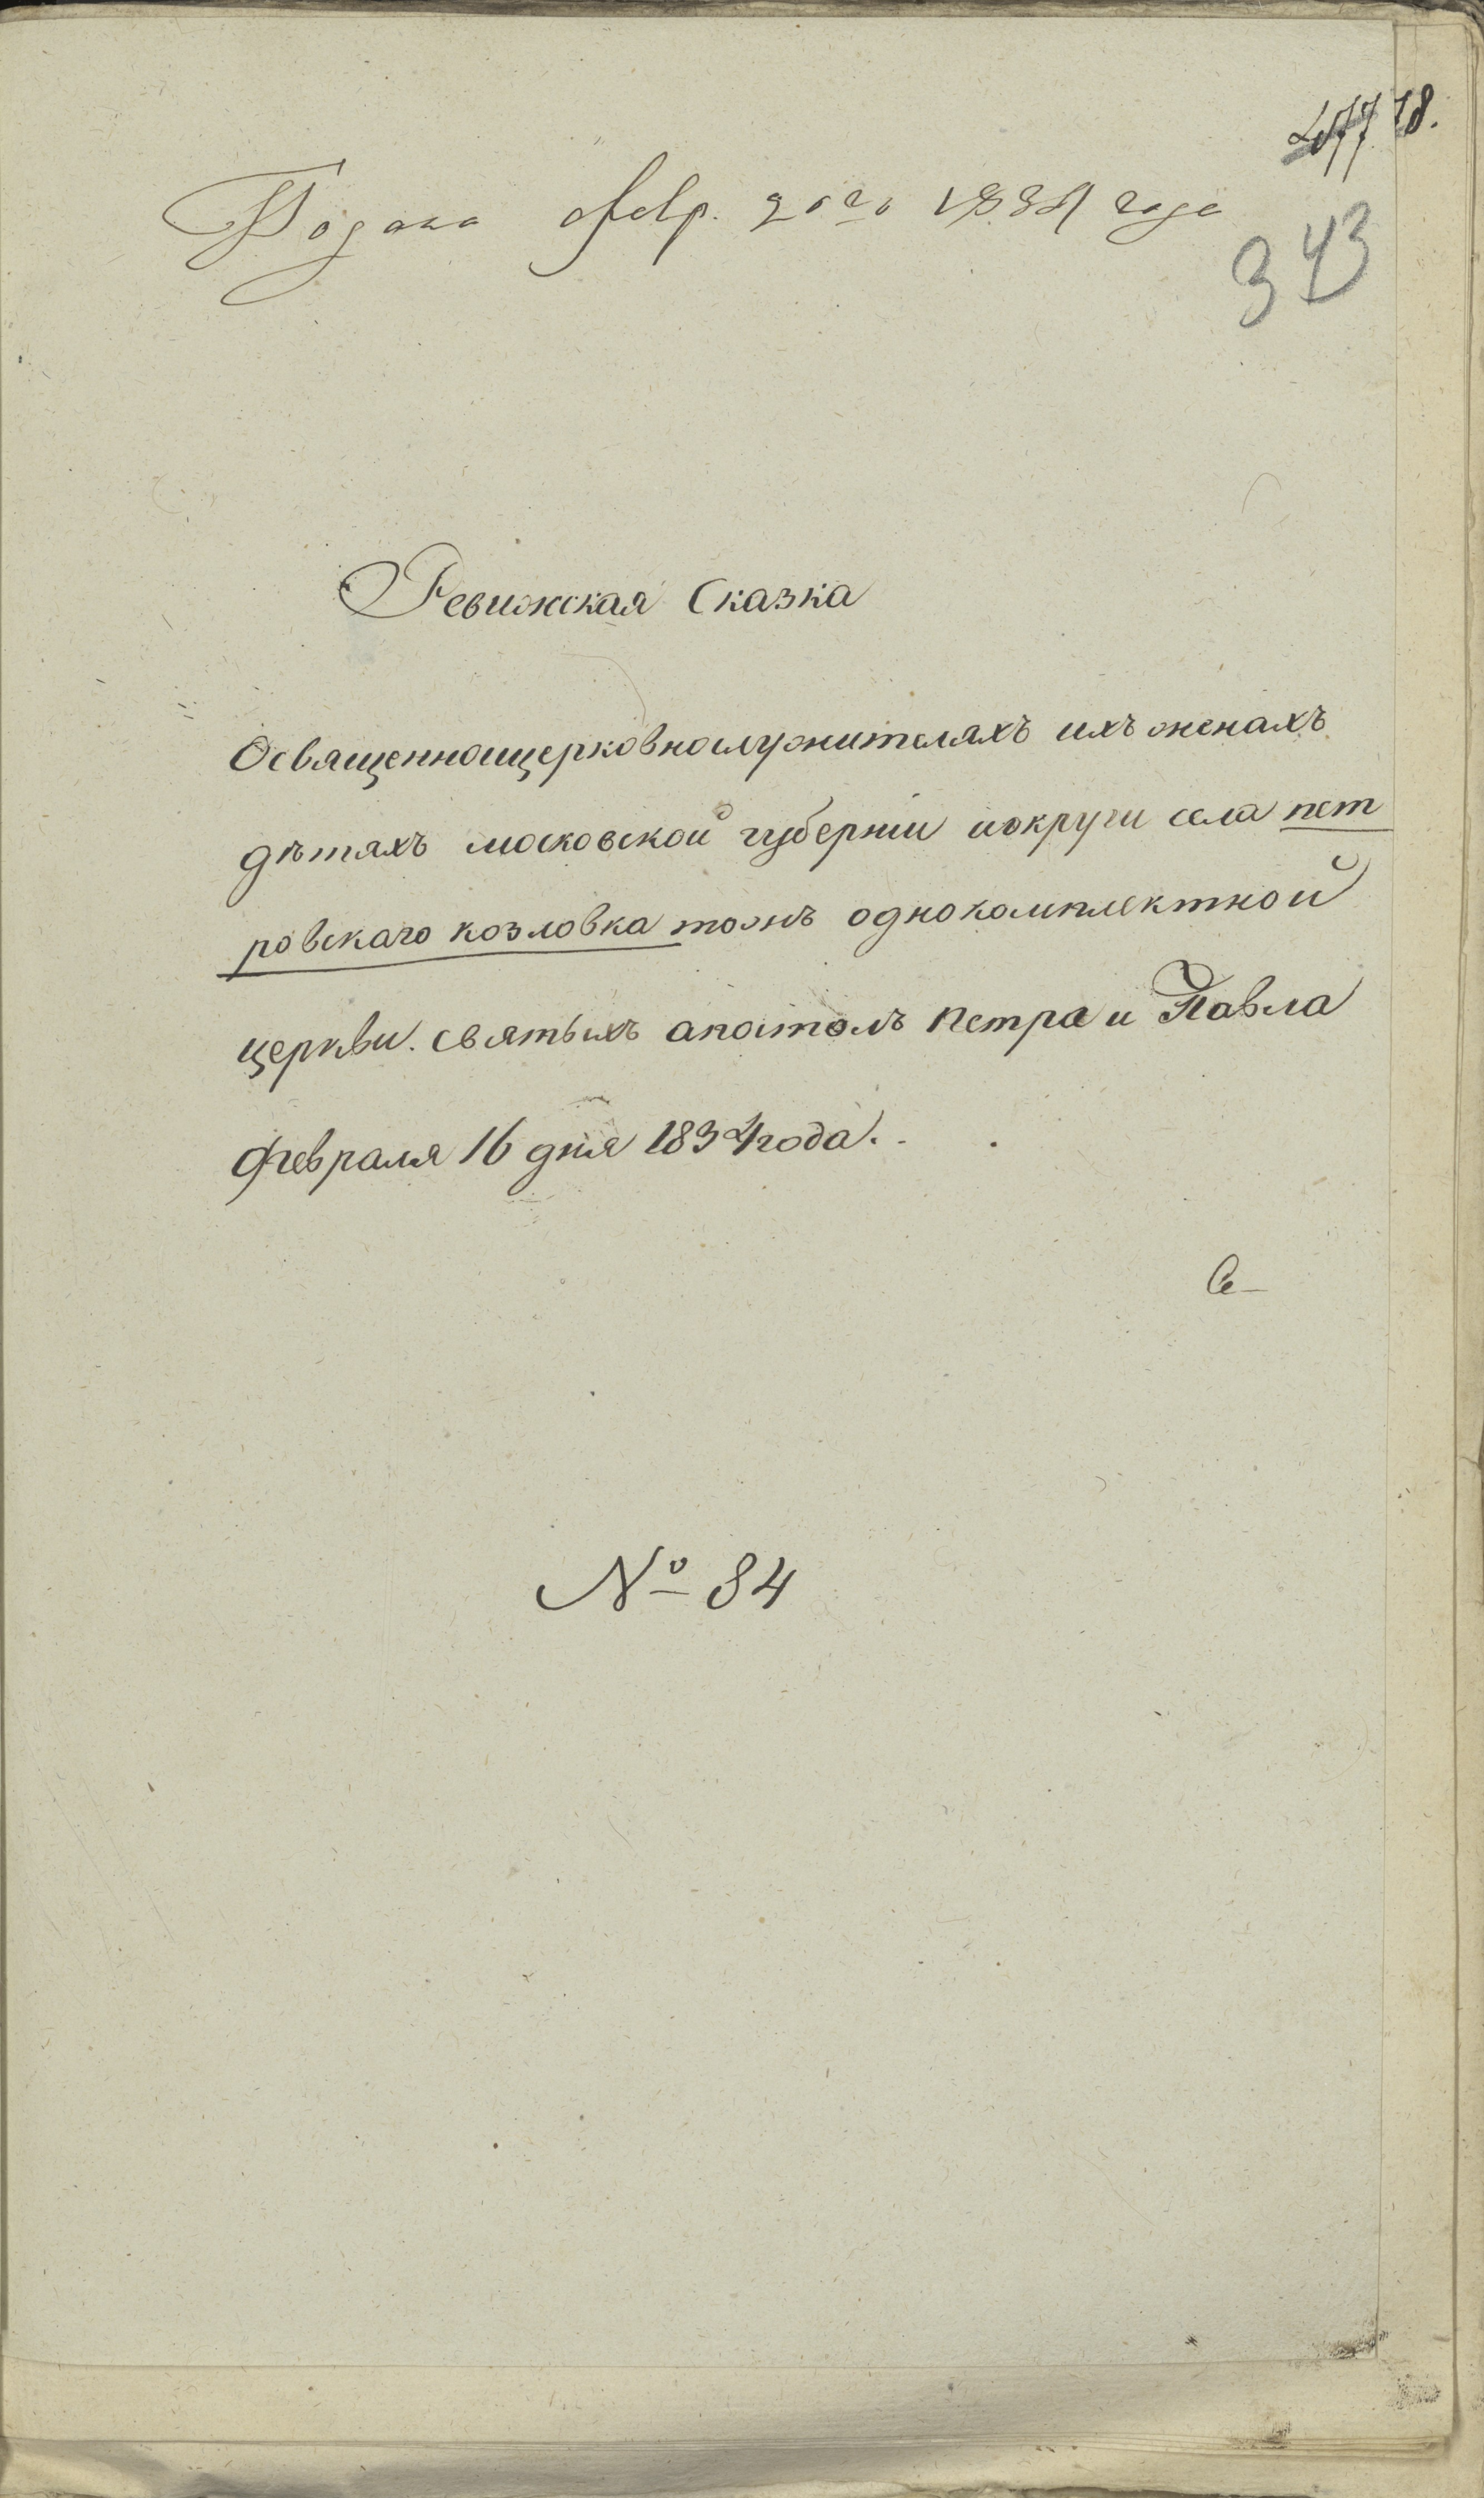 18.
Подана Февр. 20го 1834 года
343
Ревижская Сказка
Освященноцерковнослужителяхъ ихъ женахъ
дѣтяхъ московской губерніи иокруги села пет
ровскаго козловка тожъ однокомплектной
церкви. святыхъ апостолъ петра и Павла
Февраля 16 дня 1834 года.
№ 84